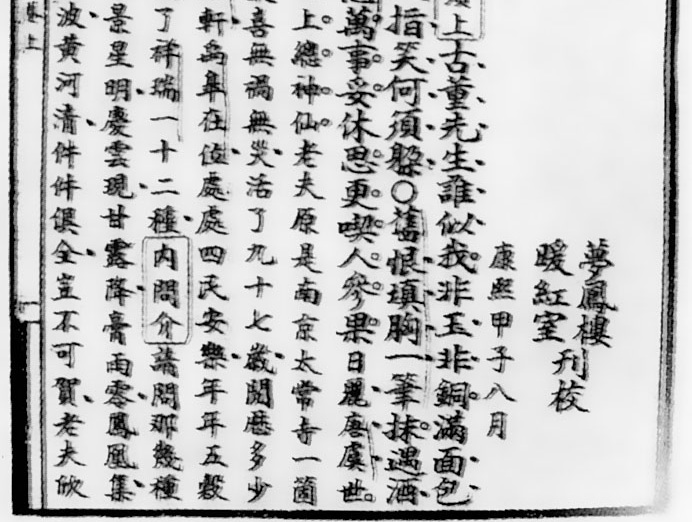 夢鳳樓
暖紅室
刊校
康熙甲子八月
上古董先生誰似我非玉非銅滿面包
指笑何須躲○舊恨塡胸一筆抹遇酒
萬事妥休思更喫人參果日麗唐虞世
上總神仙老夫原是南京太常寺一箇
喜無禍無災活了九十七歲閱歷多少
軒禹皐在位處處四民安樂年年五穀
了祥瑞一十二種內問介請問那幾種
景星明慶雲現甘露降膏雨零鳳凰集
波黃河淸件件俱全豈不可賀老夫欣
上